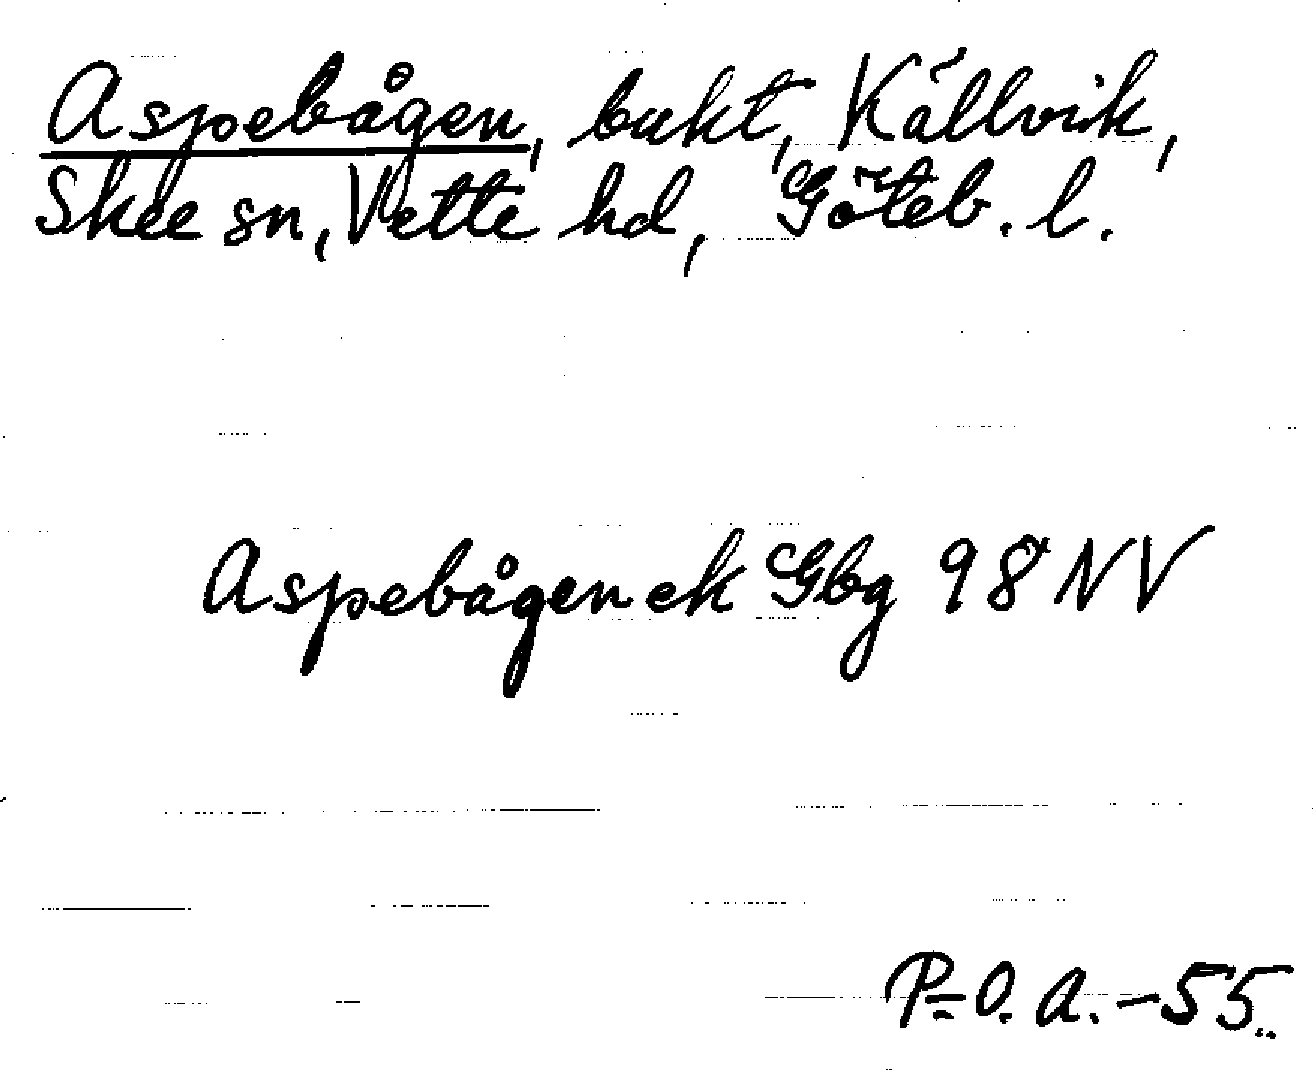 Aspebågen, bukt, Källvik,
Skee sn, Vette hd, Göteb. l.
Aspebågen ek Gbg 98 NV
P-O. A. -55.